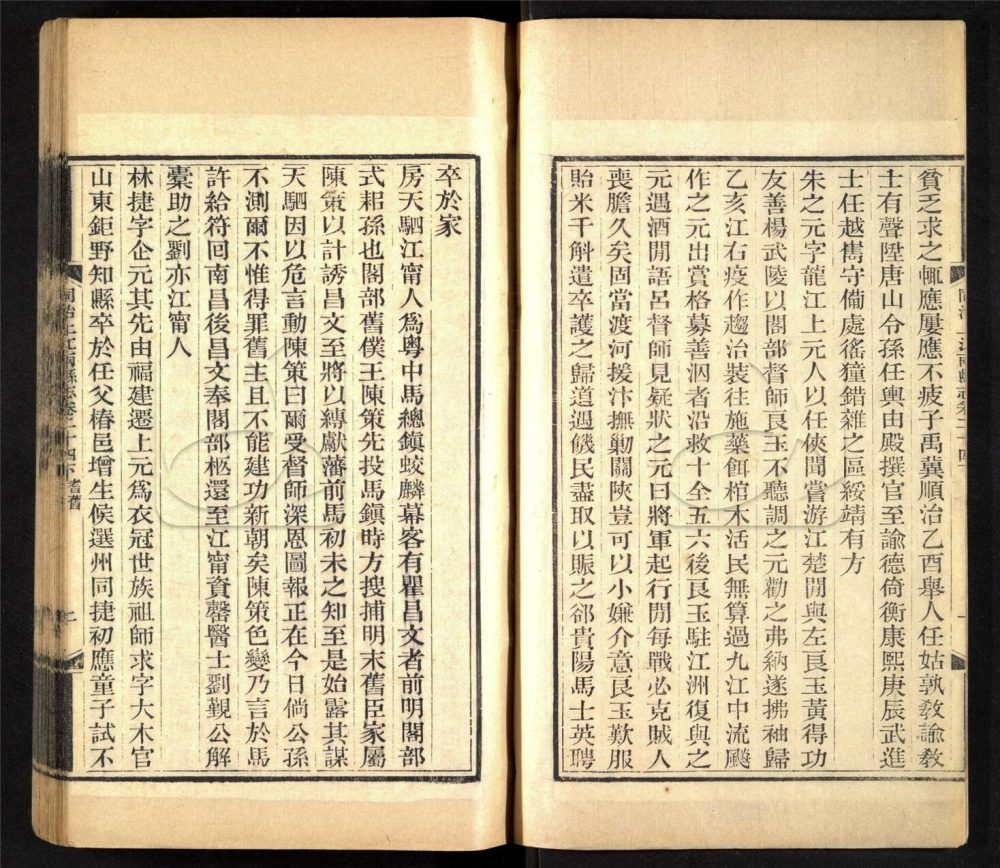 貧乏求之輒應屢應不疲子禹冀順治乙酉舉人任姑孰敎諭敎
士有聲陞唐山令孫任輿由殿撰官至諭德倚衡康熙庚辰武進
士任越雋守備處徭獞錯雜之區綏靖有方
朱之元字龍江上元人以任俠聞嘗游江楚閒與左良玉黃得功
友善楊武陵以閣部督師良玉不聽調之元勸之弗納遂拂袖歸
乙亥江右疫作趨治裝往施藥餌棺木活民無算過九江中流颶
作之元出賞格募善泅者沿救十全五六後良玉駐江洲復與之
元遇酒閒語呂督師見疑狀之元曰將軍起行閒每戰必克賊人
喪膽久矣固當渡河援汴撫勦關陝豈可以小嫌介意良玉歎服
貽米千斛遣卒護之歸道遇饑民盡取以賑之郤貴陽馬士英聘
卒於家
房天駟江甯人爲粵中馬總鎭蛟麟幕客有瞿昌文者前明閣部
式耜孫也閣部舊僕王陳策先投馬鎭時方搜捕明末舊臣家屬
陳策以計誘昌文至將以縛獻藩前馬初未之知至是始露其謀
天駟因以危言動陳策曰爾受督師深恩圖報正在今日倘公孫
不測爾不惟得罪舊主且不能建功新朝矣陳策色變乃言於馬
許給符回南昌後昌文奉閣部柩還至江甯資罄醫士劉覲公解
橐助之劉亦江甯人
林捷字企元其先由福建遷上元爲衣冠世族祖師求字大木官
山東鉅野知縣卒於任父椿邑增生候選州同捷初應童子試不
同治上江兩縣志卷二十四下耆舊